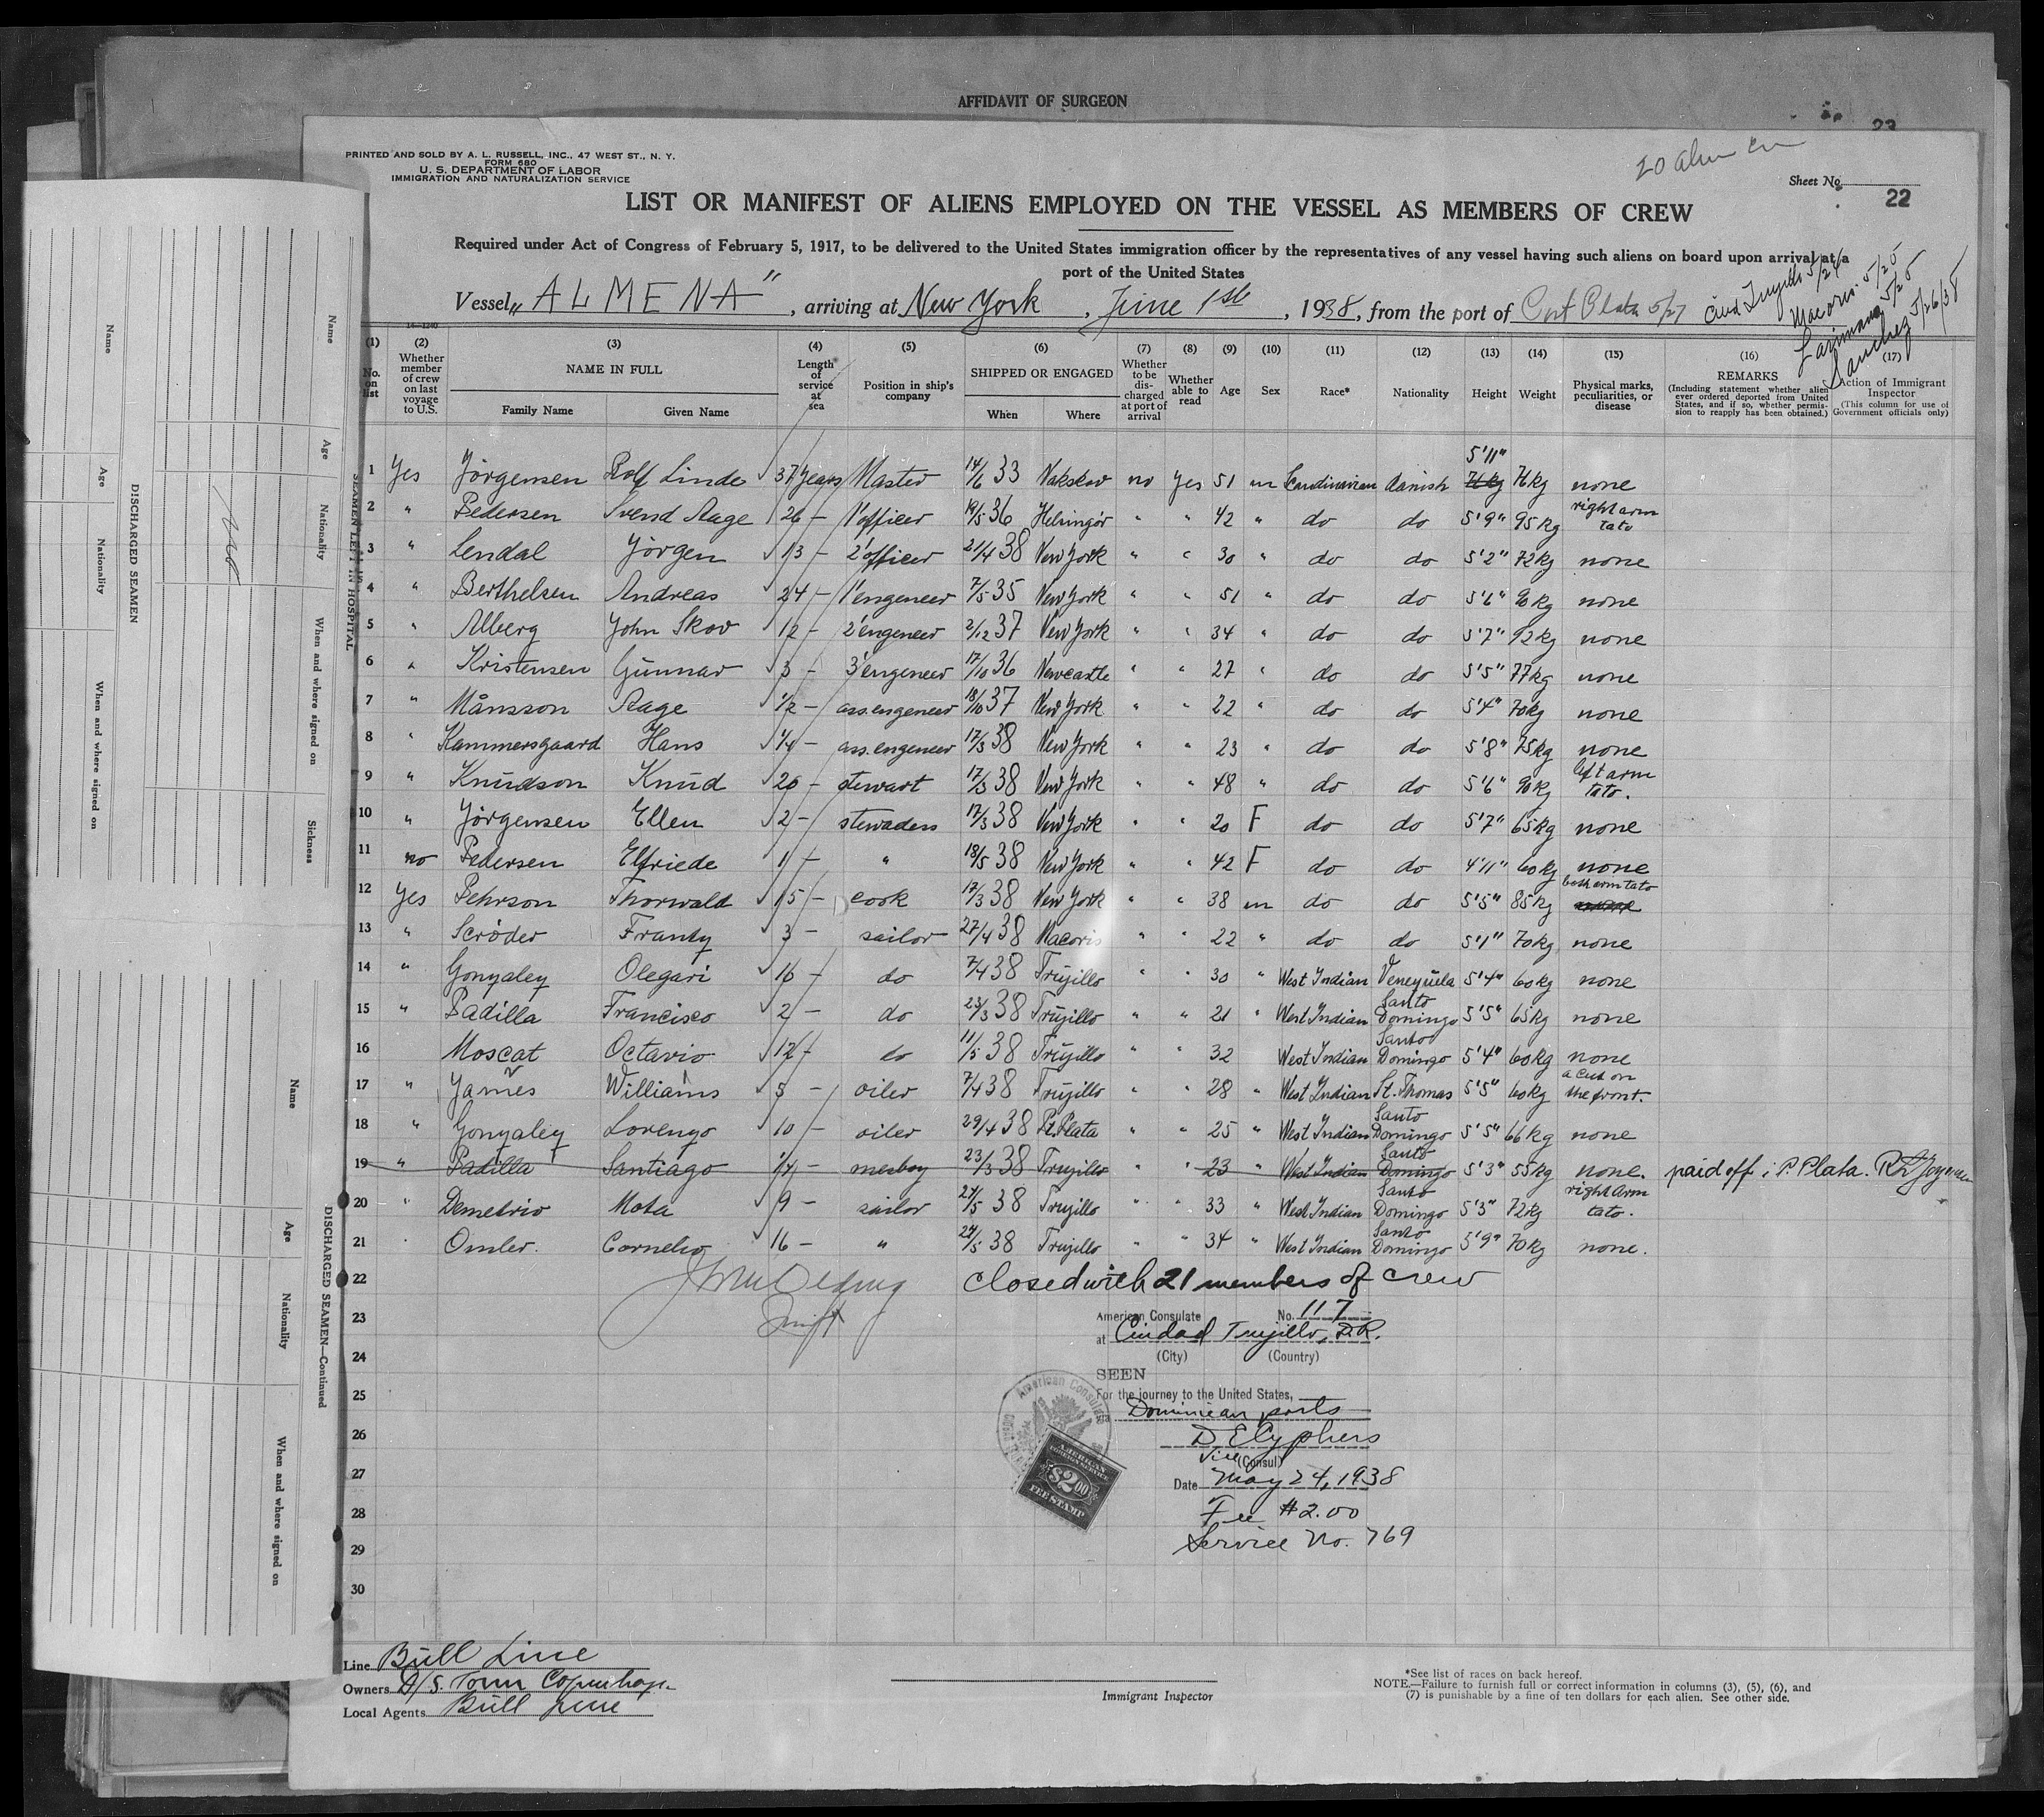 AFFIDAVIT OF SURGEON
23
PRINTED AND SOLD BY A. L. RUSSELL, INC., 47 WEST ST., N. Y.
FORM 680
U. S. DEPARTMENT OF LABOR
IMMIGRATION AND NATURALIZATION SERVICE
Sheet No.
22
LIST OR MANIFEST OF ALIENS EMPLOYED ON THE VESSEL AS MEMBERS OF CREW
Required under Act of Congress of February 5, 1917, to be delivered to the United States immigration officer by the representatives of any vessel having such aliens on board upon arrival at a
port of the United States
Vessel "ALMENA", arriving at New York, June 1st, 1938, from the port of Port Plata 5/27
Ciud Trujillo 5/24
Macoris 5/25
5/25
Sanchez 5/26/38
14—1240
(1) No. on list
(2) Whether member of crew on last voyage to U.S.
(3) NAME IN FULL Family Name Given Name
(4) Length of service at sea
(5) Position in ship's company
(6) SHIPPED OR ENGAGED When Where
(7) Whether to be discharged at port of arrival
(8) Whether able to read
(9) Age
(10) Sex
(11) Race*
(12) Nationality
(13) Height
(14) Weight
(15) Physical marks, peculiarities, or disease
(16) REMARKS (Including statement whether alien ever ordered deported from United States, and if so, whether permission to reapply has been obtained.)
(17) Action of Immigrant Inspector (This column for use of Government officials only)
1 Yes Jörgensen Rolf Linde 37 Years Master 14/6 33 Nakskov no Yes 51 m Scandinavian danish 5'11" 76kg 76kg none
2 " Pedersen Svend Aage 26 – 1'officer 19/5 36 Helsingör " " 42 " do do 5'9" 95kg right arm tato
3 " Lendal Jörgen 13 – 2'officer 21/4 38 New York " " 30 " do do 5'2" 72kg none
4 " Berthelsen Andreas 24 – 1'engeneer 7/5 35 New York " " 51 " do do 5'6" 90kg none
5 " Alberg John Skov 12 – 2'engeneer 2/12 37 New York " " 34 " do do 5'7" 92kg none
6 " Kristensen Gunnar 3 – 3'engeneer 17/10 36 Newcastle " " 27 " do do 5'5" 77kg none
7 " Månsson Aage 1/2 – ass.engeneer 18/10 37 New York " " 22 " do do 5'4" 70kg none
8 " Kammersgaard Hans 1/4 – ass.engeneer 17/3 38 New York " " 23 " do do 5'8" 75kg none
9 " Knudson Knud 20 – stewart 17/3 38 New York " " 48 " do do 5'6" 90kg left arm tato.
10 " Jörgensen Ellen 2 – stewadess 17/3 38 New York " " 20 F do do 5'7" 65kg none
11 no Pedersen Elfriede 1 – " 18/5 38 New York " " 42 F do do 4'11" 60kg none
12 Yes Pehrson Thorwald 15 – cook 17/3 38 New York " " 38 m do do 5'5" 85kg both arm tato
13 " Scröder Frantz 3 – sailor 27/4 38 Macoris " " 22 " do do 5'1" 70kg none
14 " Gonzalez Olegari 16 – do 7/4 38 Trujillo " " 30 " West Indian Venezuela 5'4" 60kg none
15 " Padilla Francisco 2 – do 23/3 38 Trujillo " " 21 " West Indian Santo Domingo 5'5" 65kg none
16 Moscat Octavio 12 – do 11/5 38 Trujillo " " 32 West Indian Santo Domingo 5'4" 60kg none
17 " James Williams 5 – oiler 7/4 38 Trujillo " " 28 " West Indian St. Thomas 5'5" 60kg a cut on the front.
18 " Gonzalez Lorenzo 10 – oiler 29/4 38 Pt. Plata " " 25 " West Indian Santo Domingo 5'5" 66kg none
19 " Padilla Santiago 1/4 – mesboy 23/3 38 Trujillo " " 23 " West Indian Santo Domingo 5'3" 55kg none. paid off i P. Plata.
20 " Demetrio Mota 9 – sailor 24/5 38 Trujillo " " 33 " West Indian Santo Domingo 5'3" 72kg right arm tato.
21 " Omler. Cornelio 16 – " 24/5 38 Trujillo " " 34 " West Indian Santo Domingo 5'9" 70kg none.
22 Closed with 21 members of crew
23 American Consulate No. 117
at Ciudad Trujillo, D.R.
24 (City) (Country)
SEEN
25 For the journey to the United States,
via Dominican ports
26 D E Cyphers
Vice (Consul)
27 Date May 24, 1938
28 Fee $2.00
29 Service No. 769
30
American Consulate
AMERICAN
FOREIGN SERVICE
$2.00
FEE STAMP
Line Bull Line
Owners D/S. Torm Copenhagen
Local Agents Bull Line
Immigrant Inspector
*See list of races on back hereof.
NOTE.—Failure to furnish full or correct information in columns (3), (5), (6), and
(7) is punishable by a fine of ten dollars for each alien. See other side.
SEAMEN LEFT IN HOSPITAL
Name
Age
Nationality
When and where signed on
Sickness
DISCHARGED SEAMEN
Name
Age
Nationality
When and where signed on
DISCHARGED SEAMEN—Continued
Name
Age
Nationality
When and where signed on